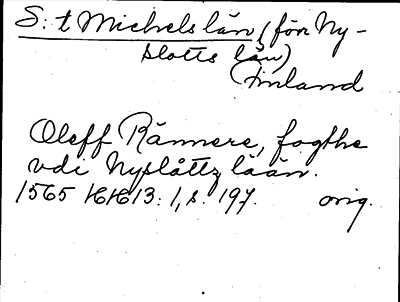 S:t Michels län (förr Ny-
slotts län)
(Finland
Oleff Rännere, fogthe
vdi Nyslåttz lään.
1565 HH 13: 1, s. 197. orig.